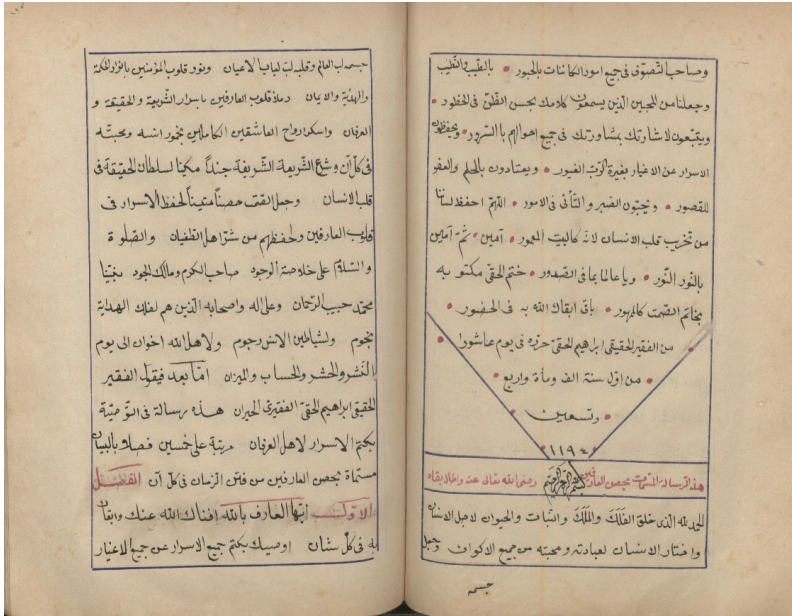 وصاحب التصوف فى جميع امور الكائنات بالحبور • بالقلب والطيب
وجعلنا من المحبين الذين يسمعون كلامك بحسن الظن فى الخطور •
ويتبعون لاشارتك بشاورتك فى جميع احوالهم بالسرور • ويحفظون
الاسرار عن الاغيار بغيرة الغيور • ويعتادون بالحلم والعفو
للقصور • ويحبون الصبر والتأنى فى الامور • اللهم احفظ لساننا
من تخريب قلب الانسان لانه كالبيت المعمور • آمين • ثم آمين
بالنور النور • ويا عالما بما فى الصدور • ختم الحقى مكتوبه
بخاتم الصمت كالمهور • باق ابقاك الله به فى الحضور •
من الفقير الحقيقى ابرهيم الحقى حرره فى يوم عاشورا •
• من اول سنة الف ومأة واربع •
• وتسعين •
١١٩٤
هذا الرسالة المسمات بحصن العارفين رضى الله تعالى عنه واطال بقاه
بسم الله الرحمن الرحيم
الحمد لله الذى خلق الفلك والملك والنبات والحيوان لاجل الانسان
واختار الانسان لعبادته ومحبته من جميع الاكوان وجعل
جسمه
جسمه لب العالم وقلبه لب لباب الاعيان ونور قلوب المؤمنين بانوار الحكمة
والهداية والايمان وملأ قلوب العارفين باسرار الشريعة والحقيقة و
العرفان واسكر ارواح العاشقين الكاملين بخمور انسه ومحبته
فى كل آن وشرع الشريعة الشريفة جنداً مكينا لسلطان الحقيقة فى
قلب الانسان وجعل الصمت حصناً متيناً لحفظ الاسرار فى
قلوب العارفين ولحفظهم من شر اهل الطغيان والصلوة
والسلام على خلاصة الوجود صاحب الكرم ومالك الجود نبينا
محمد حبيب الرحمان وعلى اله واصحابه الذين هم لفلك الهداية
نجوم ولشياطين الانس رجوم ولاهل الله اخوان الى يوم
النشر والحشر والحساب والميزان اما بعد فيقول الفقير
الحقيقى ابراهيم الحقى الفقيرى الحيران هذه رسالة فى التوصية
بكتم الاسرار لاهل العرفان مرتبة على خمسين فصلا بالبيان
مسماة بحصن العارفين من فتن الزمان فى كل آن الفصل
الاول ايها العارف بالله افناك الله عنك وابقاك
به فى كل شان اوصيك بكتم جميع الاسرار عن جميع الاغيار